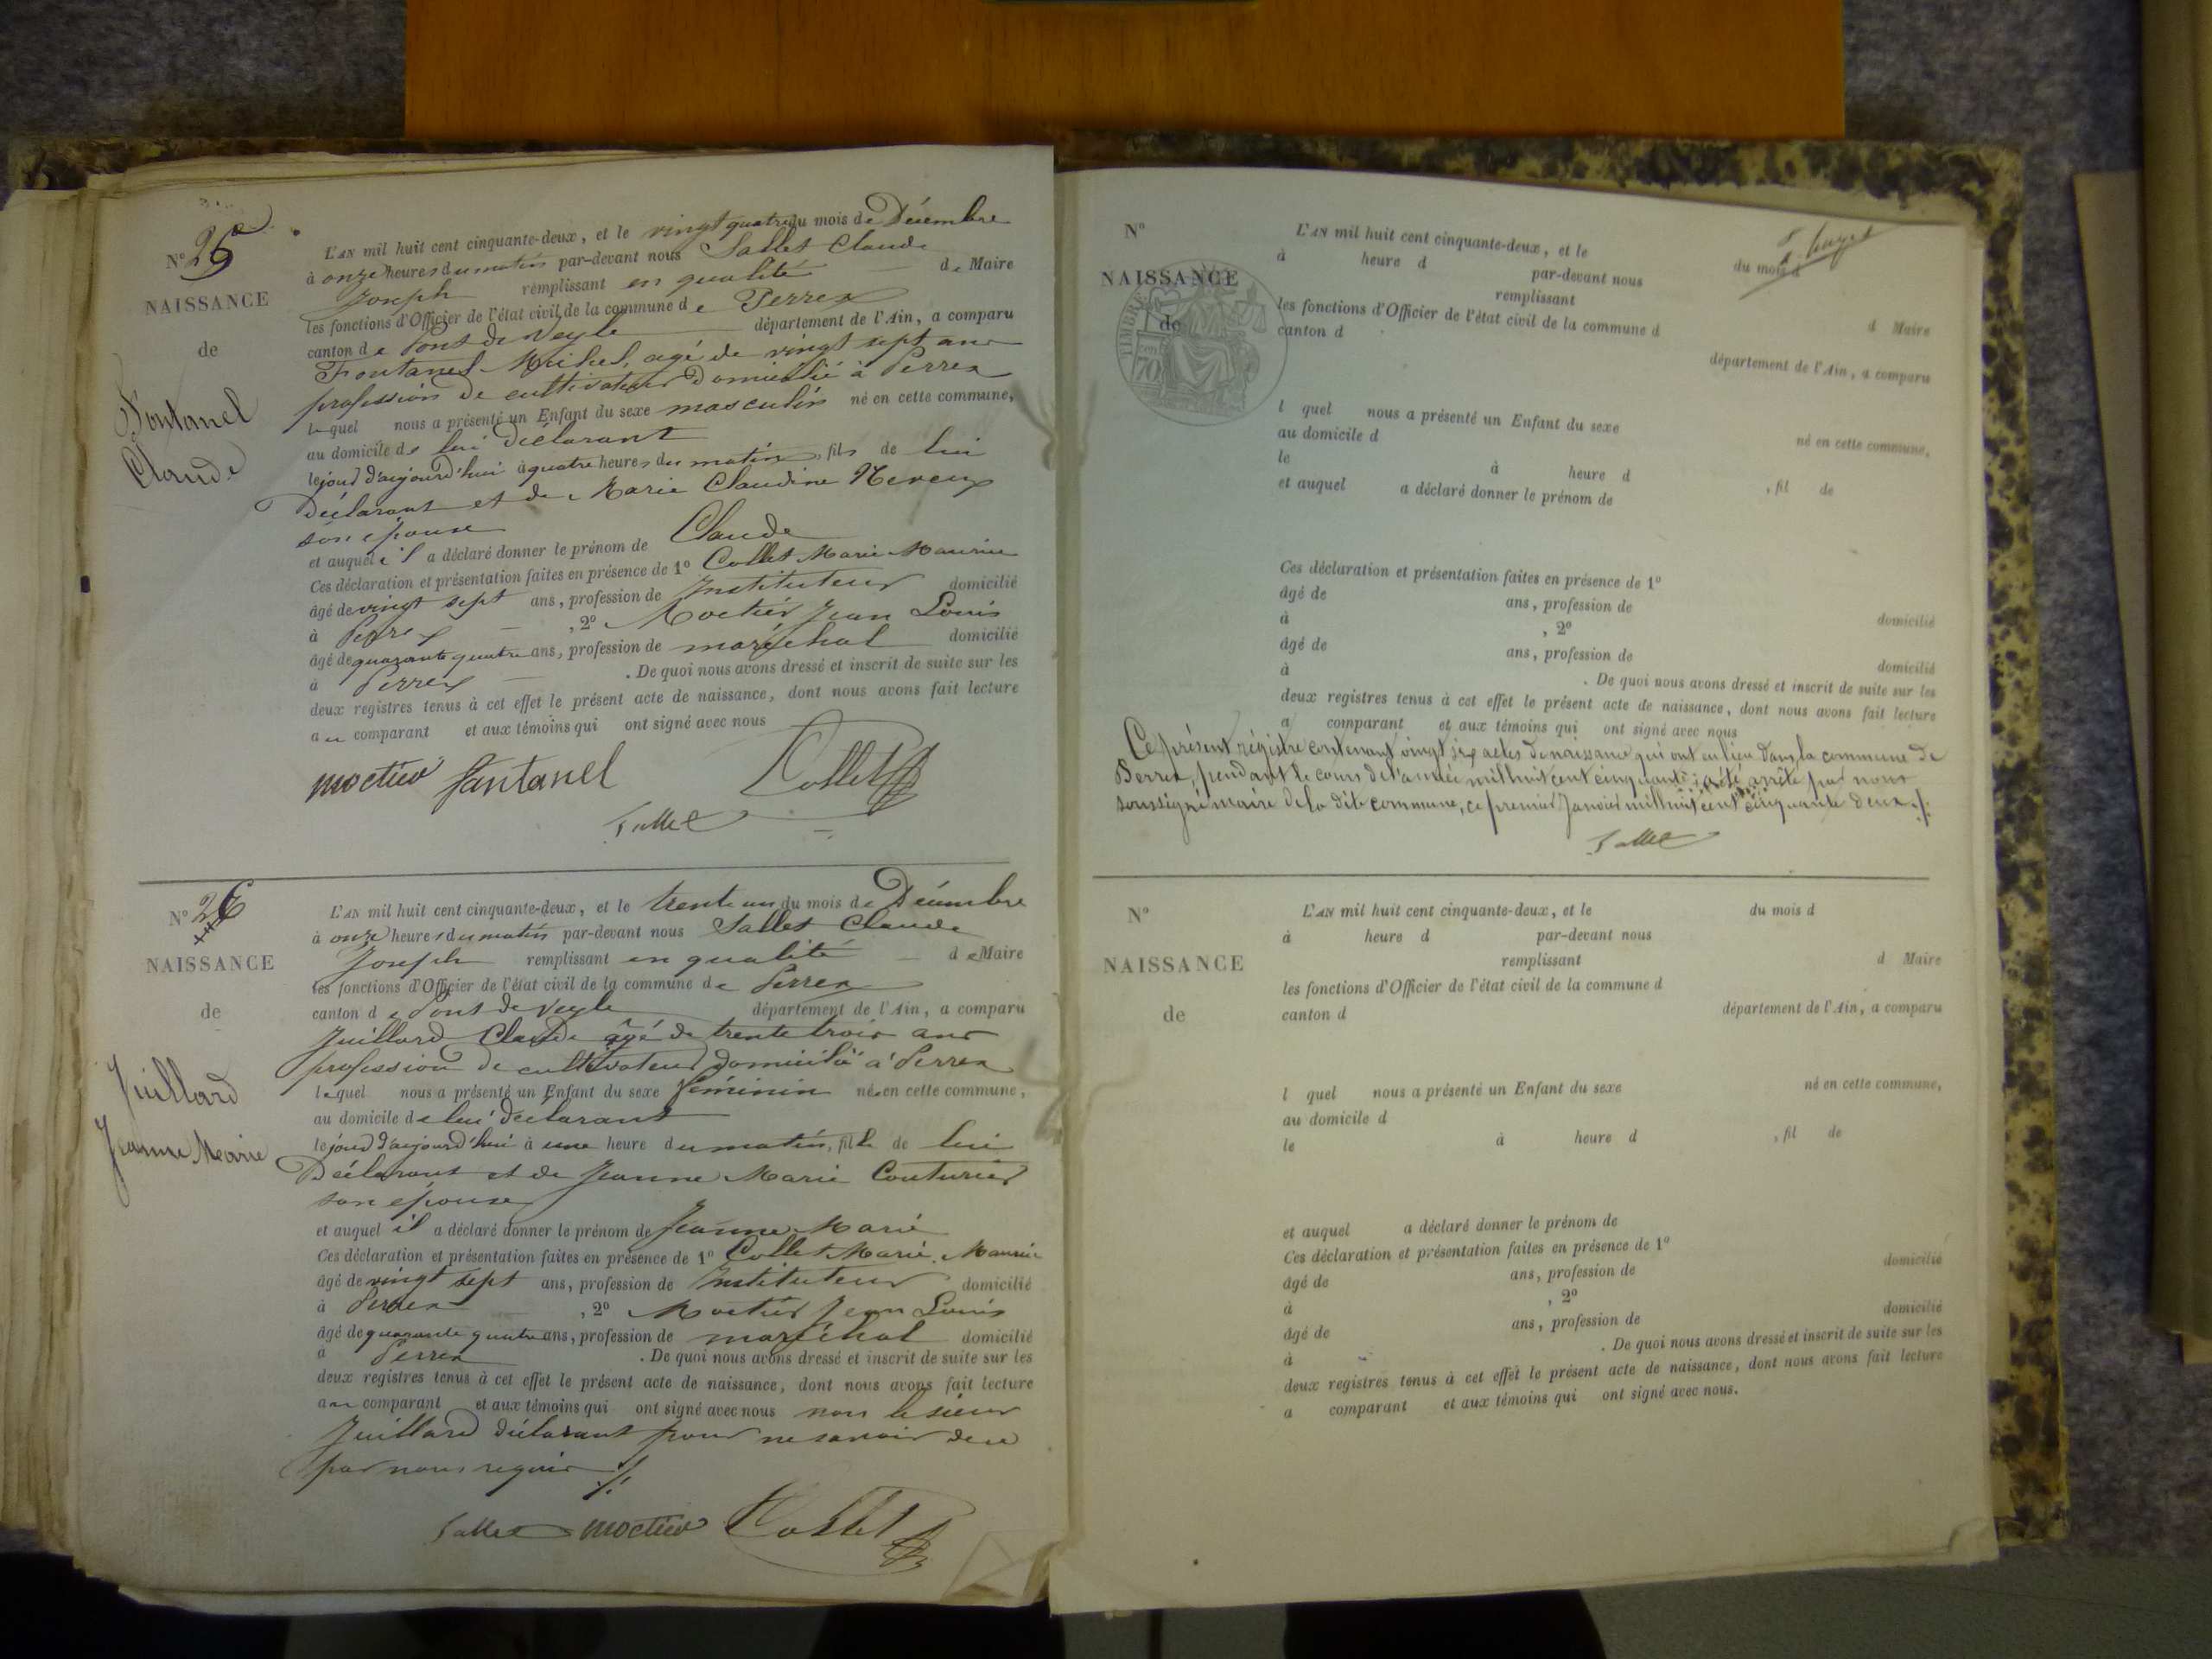 N° 25
NAISSANCE
de
Fontanel
Claude
L'AN mil huit cent cinquante-deux, et le vingt quatre du mois de Décembre
à onze heures du matin par-devant nous Sallet Claude
Joseph remplissant en qualité de Maire
les fonctions d'Officier de l'état civil de la commune de Perrex
canton de Pont de Veyle département de l'Ain, a comparu
Fontanel Michel, agé de vingt sept ans
profession de cultivateur domicilié à Perrex
lequel nous a présenté un Enfant du sexe masculin né en cette commune,
au domicile de lui déclarant
le jour d'aujourd'hui à quatre heures du matin, fils de lui
Déclarant et de Marie Claudine
son épouse
et auquel il a déclaré donner le prénom de Claude
Ces déclaration et présentation faites en présence de 1° Collet Marie Maurice
âgé de vingt sept ans, profession de Instituteur domicilié
à Perrex , 2° Moctier Jean Louis
âgé de quarante quatre ans, profession de maréchal domicilié
à Perrex . De quoi nous avons dressé et inscrit de suite sur les
deux registres tenus à cet effet le présent acte de naissance, dont nous avons fait lecture
au comparant et aux témoins qui ont signé avec nous
moctier fantanel Collet
Sallet
N° 26
NAISSANCE
de
Juillard
Jeanne Marie
L'AN mil huit cent cinquante-deux, et le trente un du mois de Décembre
à onze heures du matin par-devant nous Sallet Claude
Joseph remplissant en qualité de Maire
les fonctions d'Officier de l'état civil de la commune de Perrex
canton de Pont de Veyle département de l'Ain, a comparu
Juillard Claude âgé de trente trois ans
profession de cultivateur domicilié à Perrex
lequel nous a présenté un Enfant du sexe féminin née en cette commune,
au domicile de lui déclarant
le jour d'aujourd'hui à une heure du matin, fille de lui
Déclarant et de Jeanne Marie Couturier
son épouse
et auquel il a déclaré donner le prénom de Jeanne Marie
Ces déclaration et présentation faites en présence de 1° Collet Marie Maurice
âgé de vingt sept ans, profession de Instituteur domicilié
à Perrex , 2° Moctier Jean Louis
âgé de quarante quatre ans, profession de maréchal domicilié
à Perrex . De quoi nous avons dressé et inscrit de suite sur les
deux registres tenus à cet effet le présent acte de naissance, dont nous avons fait lecture
au comparant et aux témoins qui ont signé avec nous non le sieur
Juillard déclarant pour ne savoir de ce
par nous requis ./.
Sallet moctier Collet
N°
NAISSANCE
de
TIMBRE
70
L'AN mil huit cent cinquante-deux, et le du mois d
à heure d par-devant nous
remplissant d Maire
les fonctions d'Officier de l'état civil de la commune d
canton d département de l'Ain, a comparu
l quel nous a présenté un Enfant du sexe né en cette commune,
au domicile d
le à heure d , fil de
et auquel a déclaré donner le prénom de
Ces déclaration et présentation faites en présence de 1°
âgé de ans, profession de domicilié
à , 2°
âgé de ans, profession de domicilié
à . De quoi nous avons dressé et inscrit de suite sur les
deux registres tenus à cet effet le présent acte de naissance, dont nous avons fait lecture
a comparant et aux témoins qui ont signé avec nous
Ce présent régistre contenant vingt six actes de naissance qui ont eu lieu dans la commune de
Perrex, pendant le cours de l'année mil huit cent cinquante a été arrêté par nous
soussigné maire de la dite commune, ce premier Janvier mil huit cent cinquante deux ./.
Sallet
N°
NAISSANCE
de
L'AN mil huit cent cinquante-deux, et le du mois d
à heure d par-devant nous
remplissant d Maire
les fonctions d'Officier de l'état civil de la commune d
canton d département de l'Ain, a comparu
l quel nous a présenté un Enfant du sexe né en cette commune,
au domicile d
le à heure d , fil de
et auquel a déclaré donner le prénom de
Ces déclaration et présentation faites en présence de 1°
âgé de ans, profession de domicilié
à , 2°
âgé de ans, profession de domicilié
à . De quoi nous avons dressé et inscrit de suite sur les
deux registres tenus à cet effet le présent acte de naissance, dont nous avons fait lecture
a comparant et aux témoins qui ont signé avec nous.